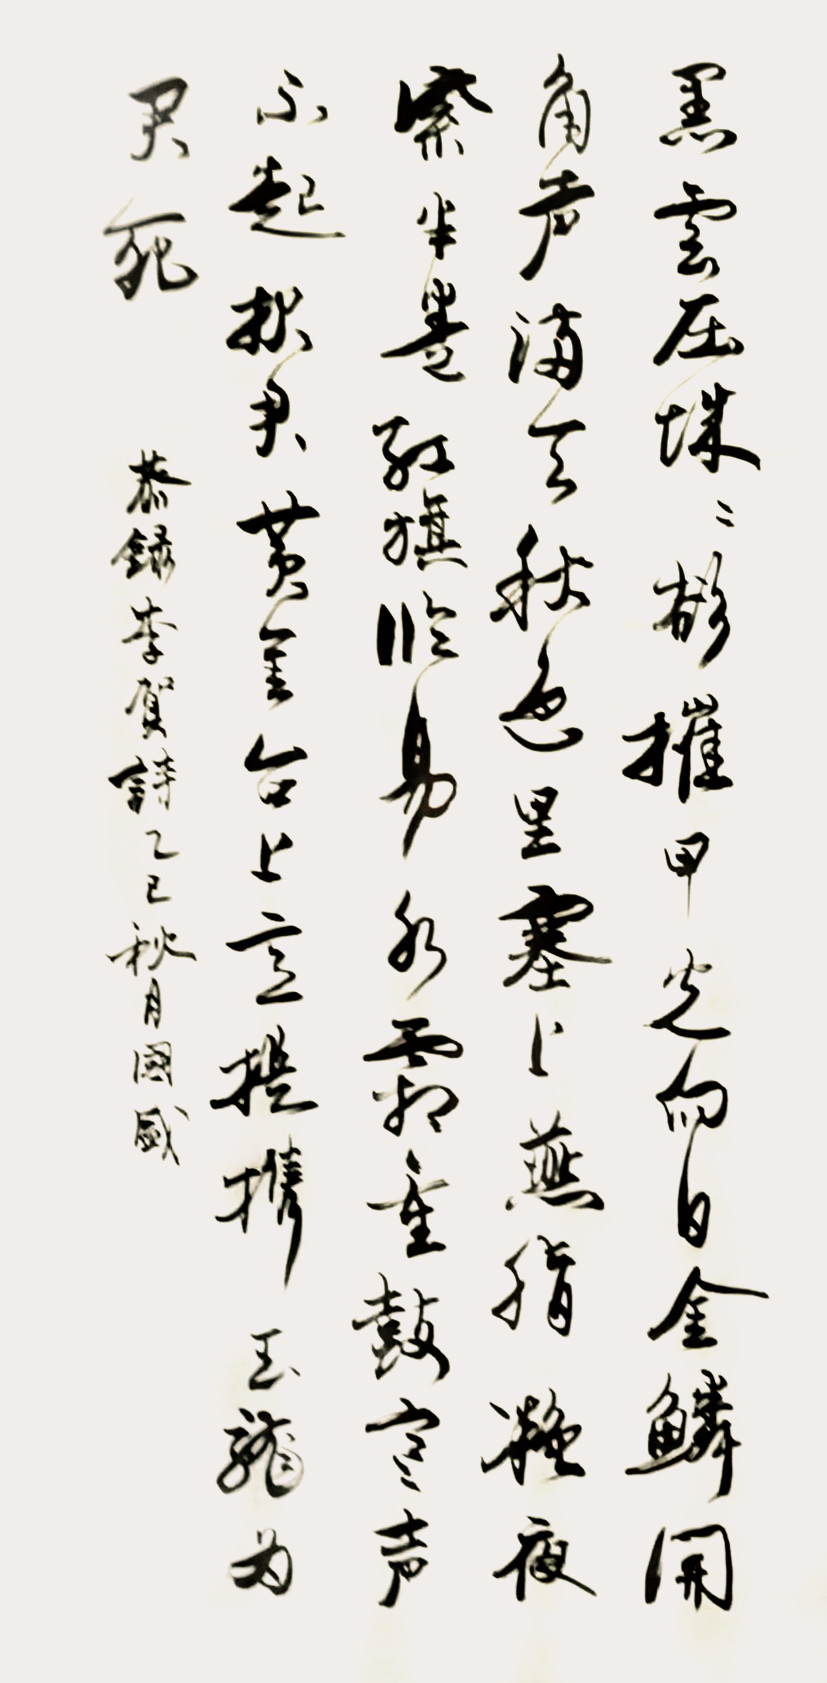 黑雲压城〻欲摧甲光向日金鱗開
角声满天秋色里塞上燕脂凝夜
紫半卷红旗临易水霜重鼓寒声
不起报君黄金台上意提携玉龍为
君死
恭録李賀詩乙巳秋月國盛